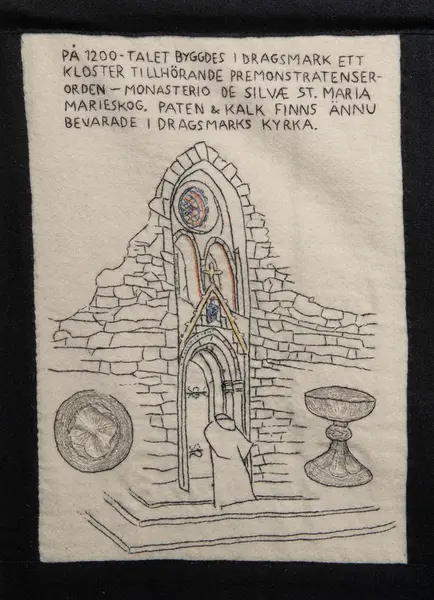 PÅ 1200-TALET BYGGDES I DRAGSMARK ETT
KLOSTER TILLHÖRANDE PREMONSTRATENSER-
ORDEN – MONASTERIO DE SILVÆ ST. MARIA
MARIESKOG. PATEN & KALK FINNS ÄNNU
BEVARADE I DRAGSMARKS KYRKA.